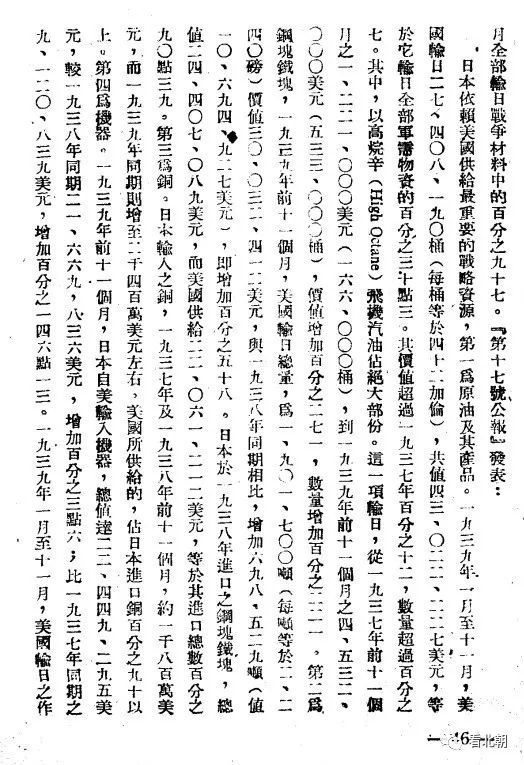 月全部輸日戰爭材料中的百分之九十七。『第十七號公報』發表：
日本依賴美國供給最重要的戰略資源，第一爲原油及其產品。一九三九年一月至十一月，美
國輸日二七、四〇八、一九〇桶（每桶等於四十二加倫），共值四三、〇二二、二二七美元，等
於它輸日全部軍需物資的百分之三十點三。其價值超過一九三七年百分之十二，數量超過百分之
七。其中，以高烷辛（High Octane）飛機汽油佔絕大部份。這一項輸日，從一九三七年前十一個
月之一、二二一、〇〇〇美元（一六六、〇〇〇桶），到一九三九年前十一個月之四、五三二、
〇〇〇美元（五三三、〇〇〇桶），價值增加百分之二七一，數量增加百分之二二一。第二爲
鋼塊鐵塊，一九三九年前十一個月，美國輸日總量，爲一、九〇一、七〇〇噸（每噸等於二、二
四〇磅）價值三〇、〇三二、四一二美元，與一九三八年同期相比，增加六九八、五二九噸（值
一〇、六九四、九二七美元），即增加百分之五十八。日本於一九三八年進口之鋼塊鐵塊，總
值二四、四〇七、〇八九美元，而美國供給二二、〇六一、二一二美元，等於其進口總數百分之
九〇點三九。第三爲銅。日本輸入之銅，一九三七年及一九三八年前十一個月，約一千八百萬美
元，而一九三九年同期則增至二千四百萬美元左右。美國所供給的，佔日本進口銅百分之九十以
上。第四爲機器。一九三九年前十一個月，日本自美輸入機器，總值達二二、四四九、二九五美
元，較一九三八年同期二一、六六九、八三六美元，增加百分之三點六；比一九三七年同期之
九、一二〇、八三九美元，增加百分之一四六點一三。一九三九年一月至十一月，美國輸日之作
— 46 —
看北朝